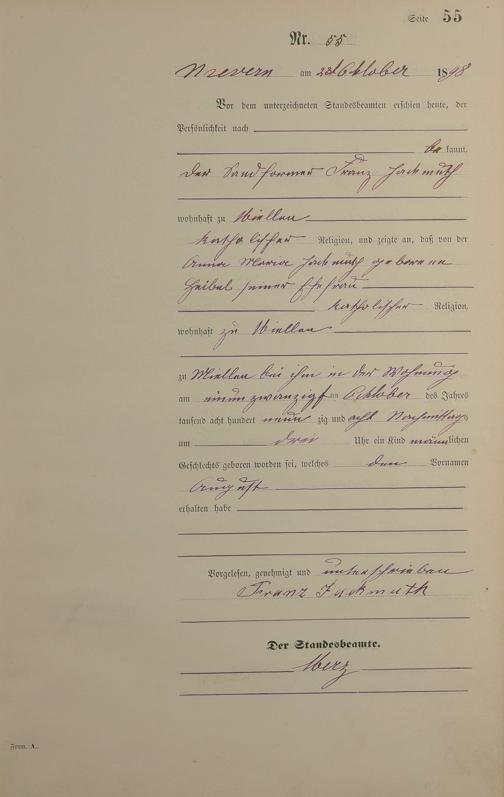 Seite 55
Nr. 55
Nievern am 24 Oktober 1898
Vor dem unterzeichneten Standesbeamten erschien heute, der
Persönlichkeit nach
be kannt,
der Sandformer Franz Jackmuth
wohnhaft zu Miellen
katholischer Religion, und zeigte an, daß von der
Anna Maria Jackmuth geborene
Heibel seiner Ehefrau
katholischer Religion,
wohnhaft zu Miellen
zu Miellen bei ihm in der Wohnung
am einundzwanzigsten Oktober des Jahres
tausend acht hundert neun zig und acht Nachmittags
um drei Uhr ein Kind männlichen
Geschlechts geboren worden sei, welches den Vornamen
August
erhalten habe
Vorgelesen, genehmigt und unterschrieben
Franz Jackmuth
Der Standesbeamte.
Merz
Form. A.